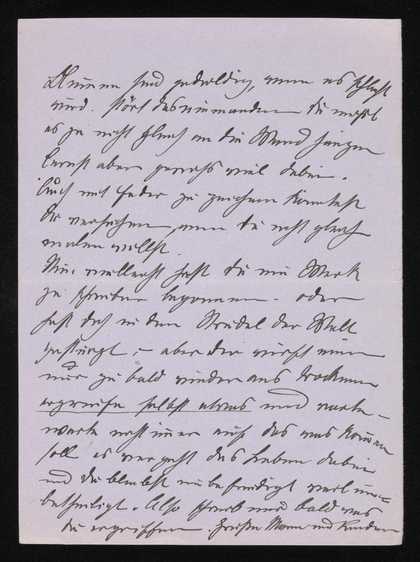 Blumen sind geduldig, wenn es schlecht
wird. stört das niemanden Du mußt
es ja nicht gleich an die Wand hängen
Lernst aber gewiß viel dabei.
Auch mit Feder zu zeichnen könntest
Du versuchen, wenn Du nicht gleich
malen willst.
Nun, vielleicht hast Du ein Werk
zu schreiben begonnen. oder
hast Dich in den Strudel der Welt
gestürzt; – aber der wirft einen
nur zu bald wieder aus
ergreife selbst etwas und warte –
warte nicht immer auf das was kommen
soll es vergeht das Leben dabei
und Du bleibst unbefriedigt weil
betheiligt. Also schreib mir bald was
Du ergriffen. Grüße Mann und Kinder